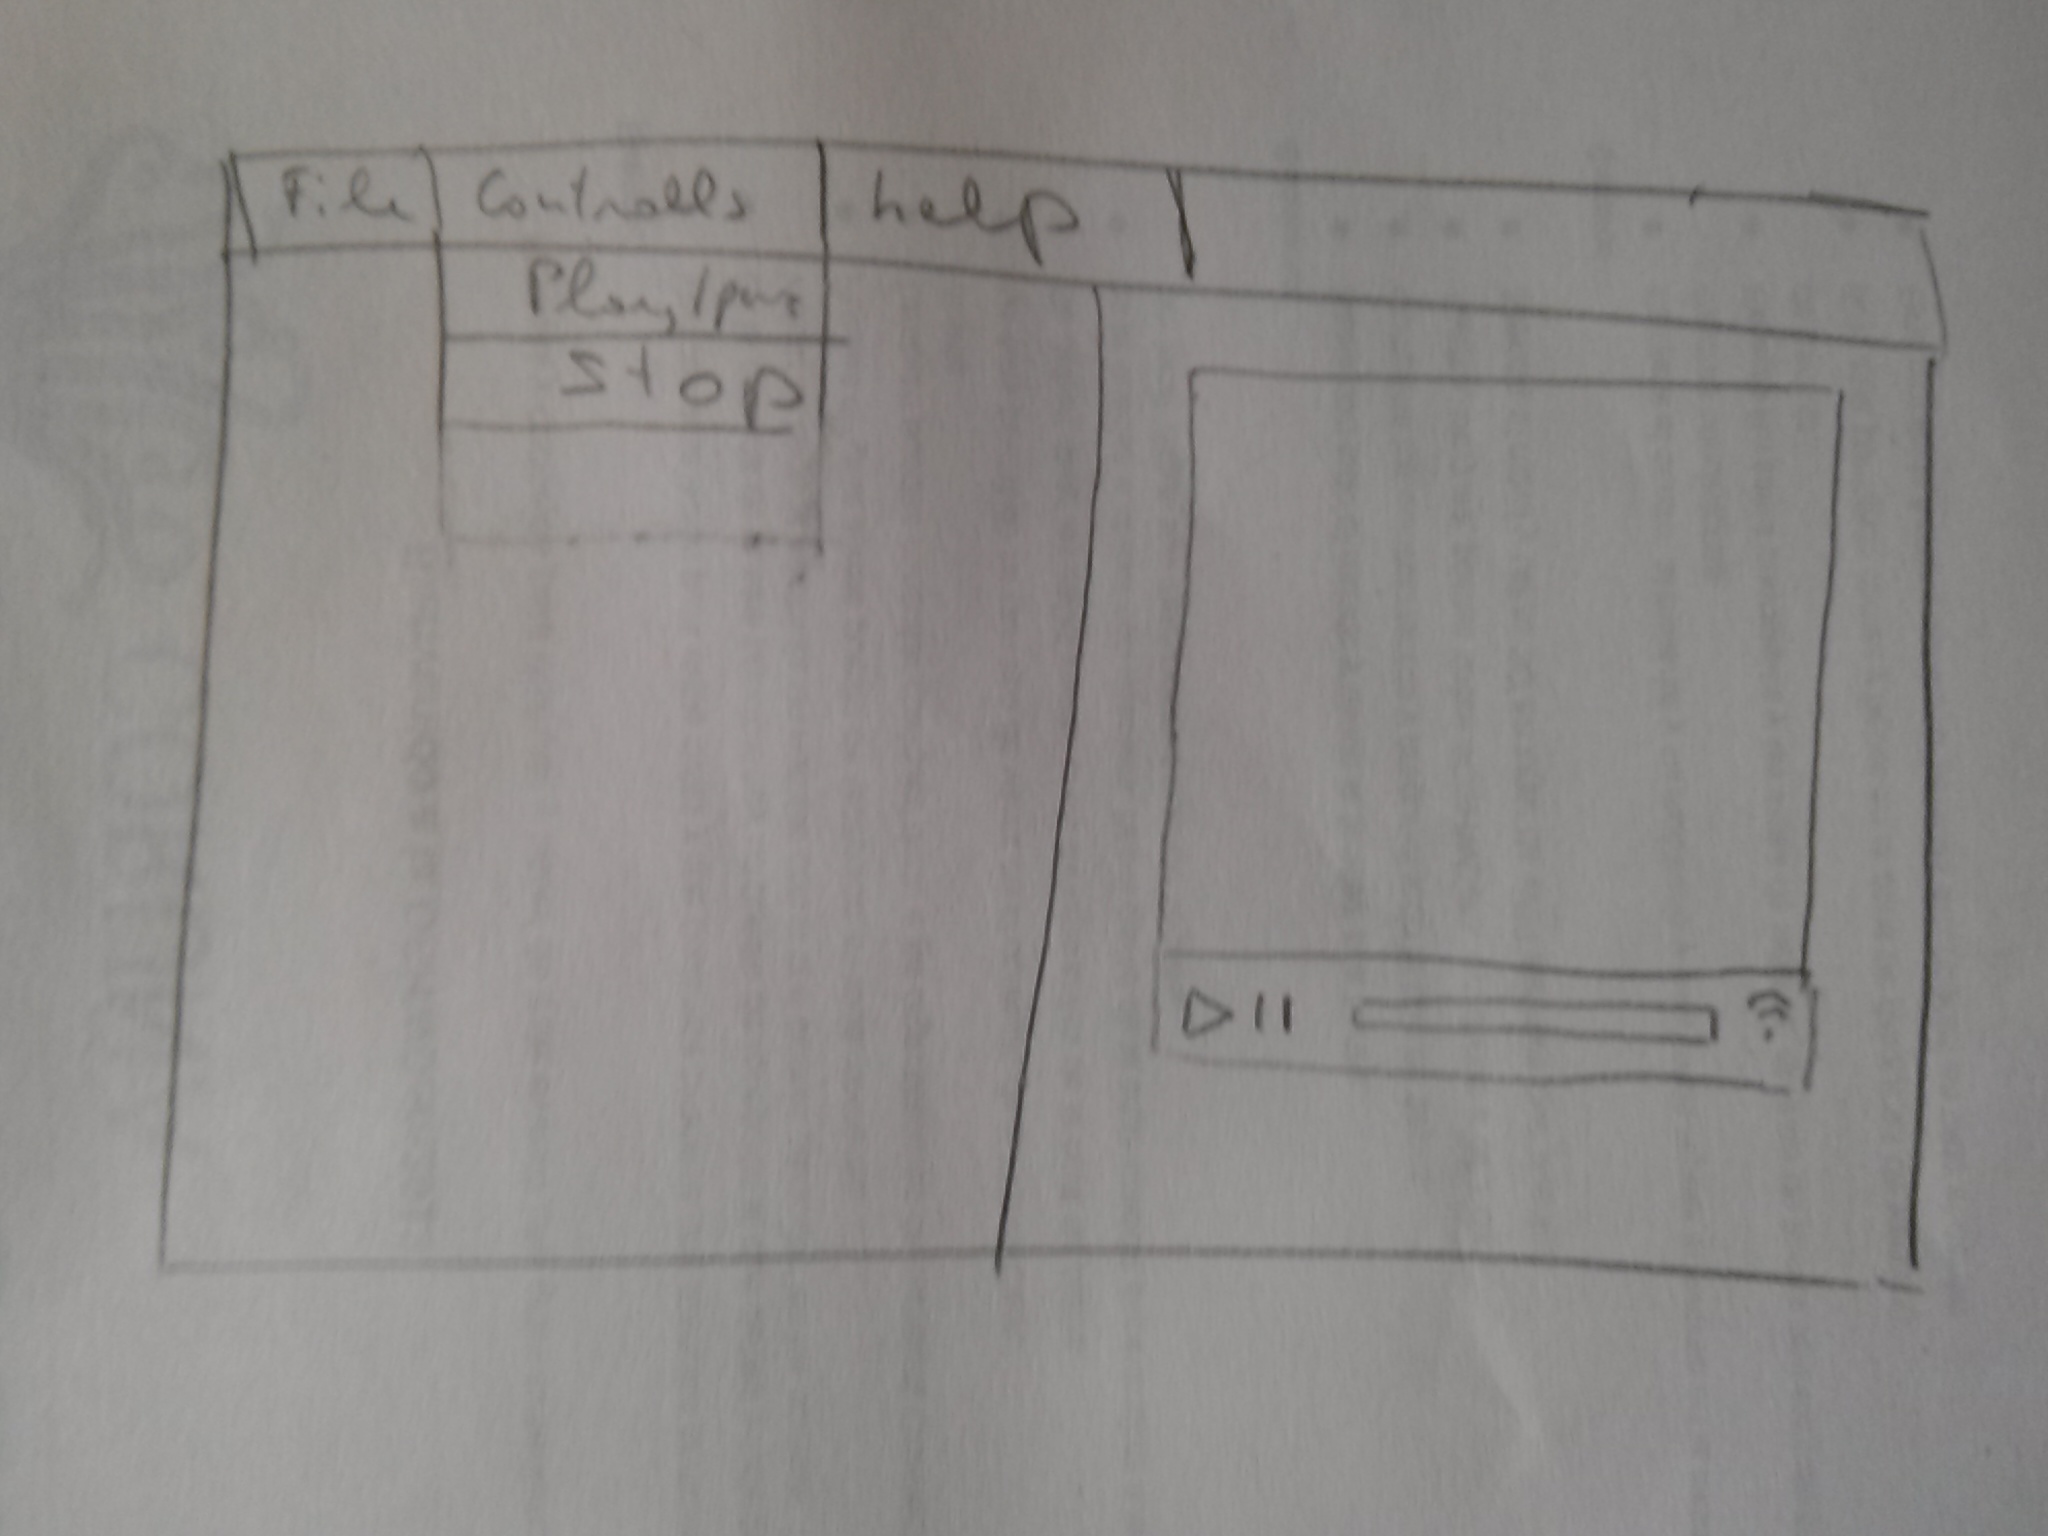 File Controlls help
Play/paus
Stop